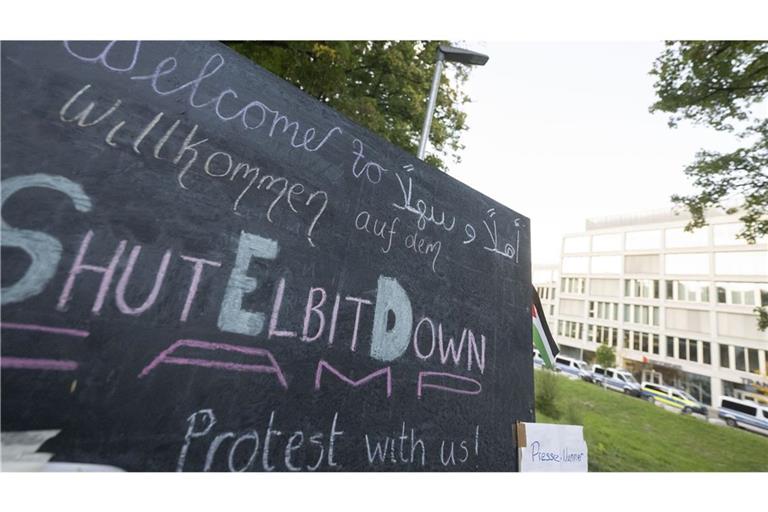 Welcome to أهلاً و سهلاً
Willkommen auf dem
SHUT ELBIT DOWN
CAMP
Protest with us!
Presse-Nummer